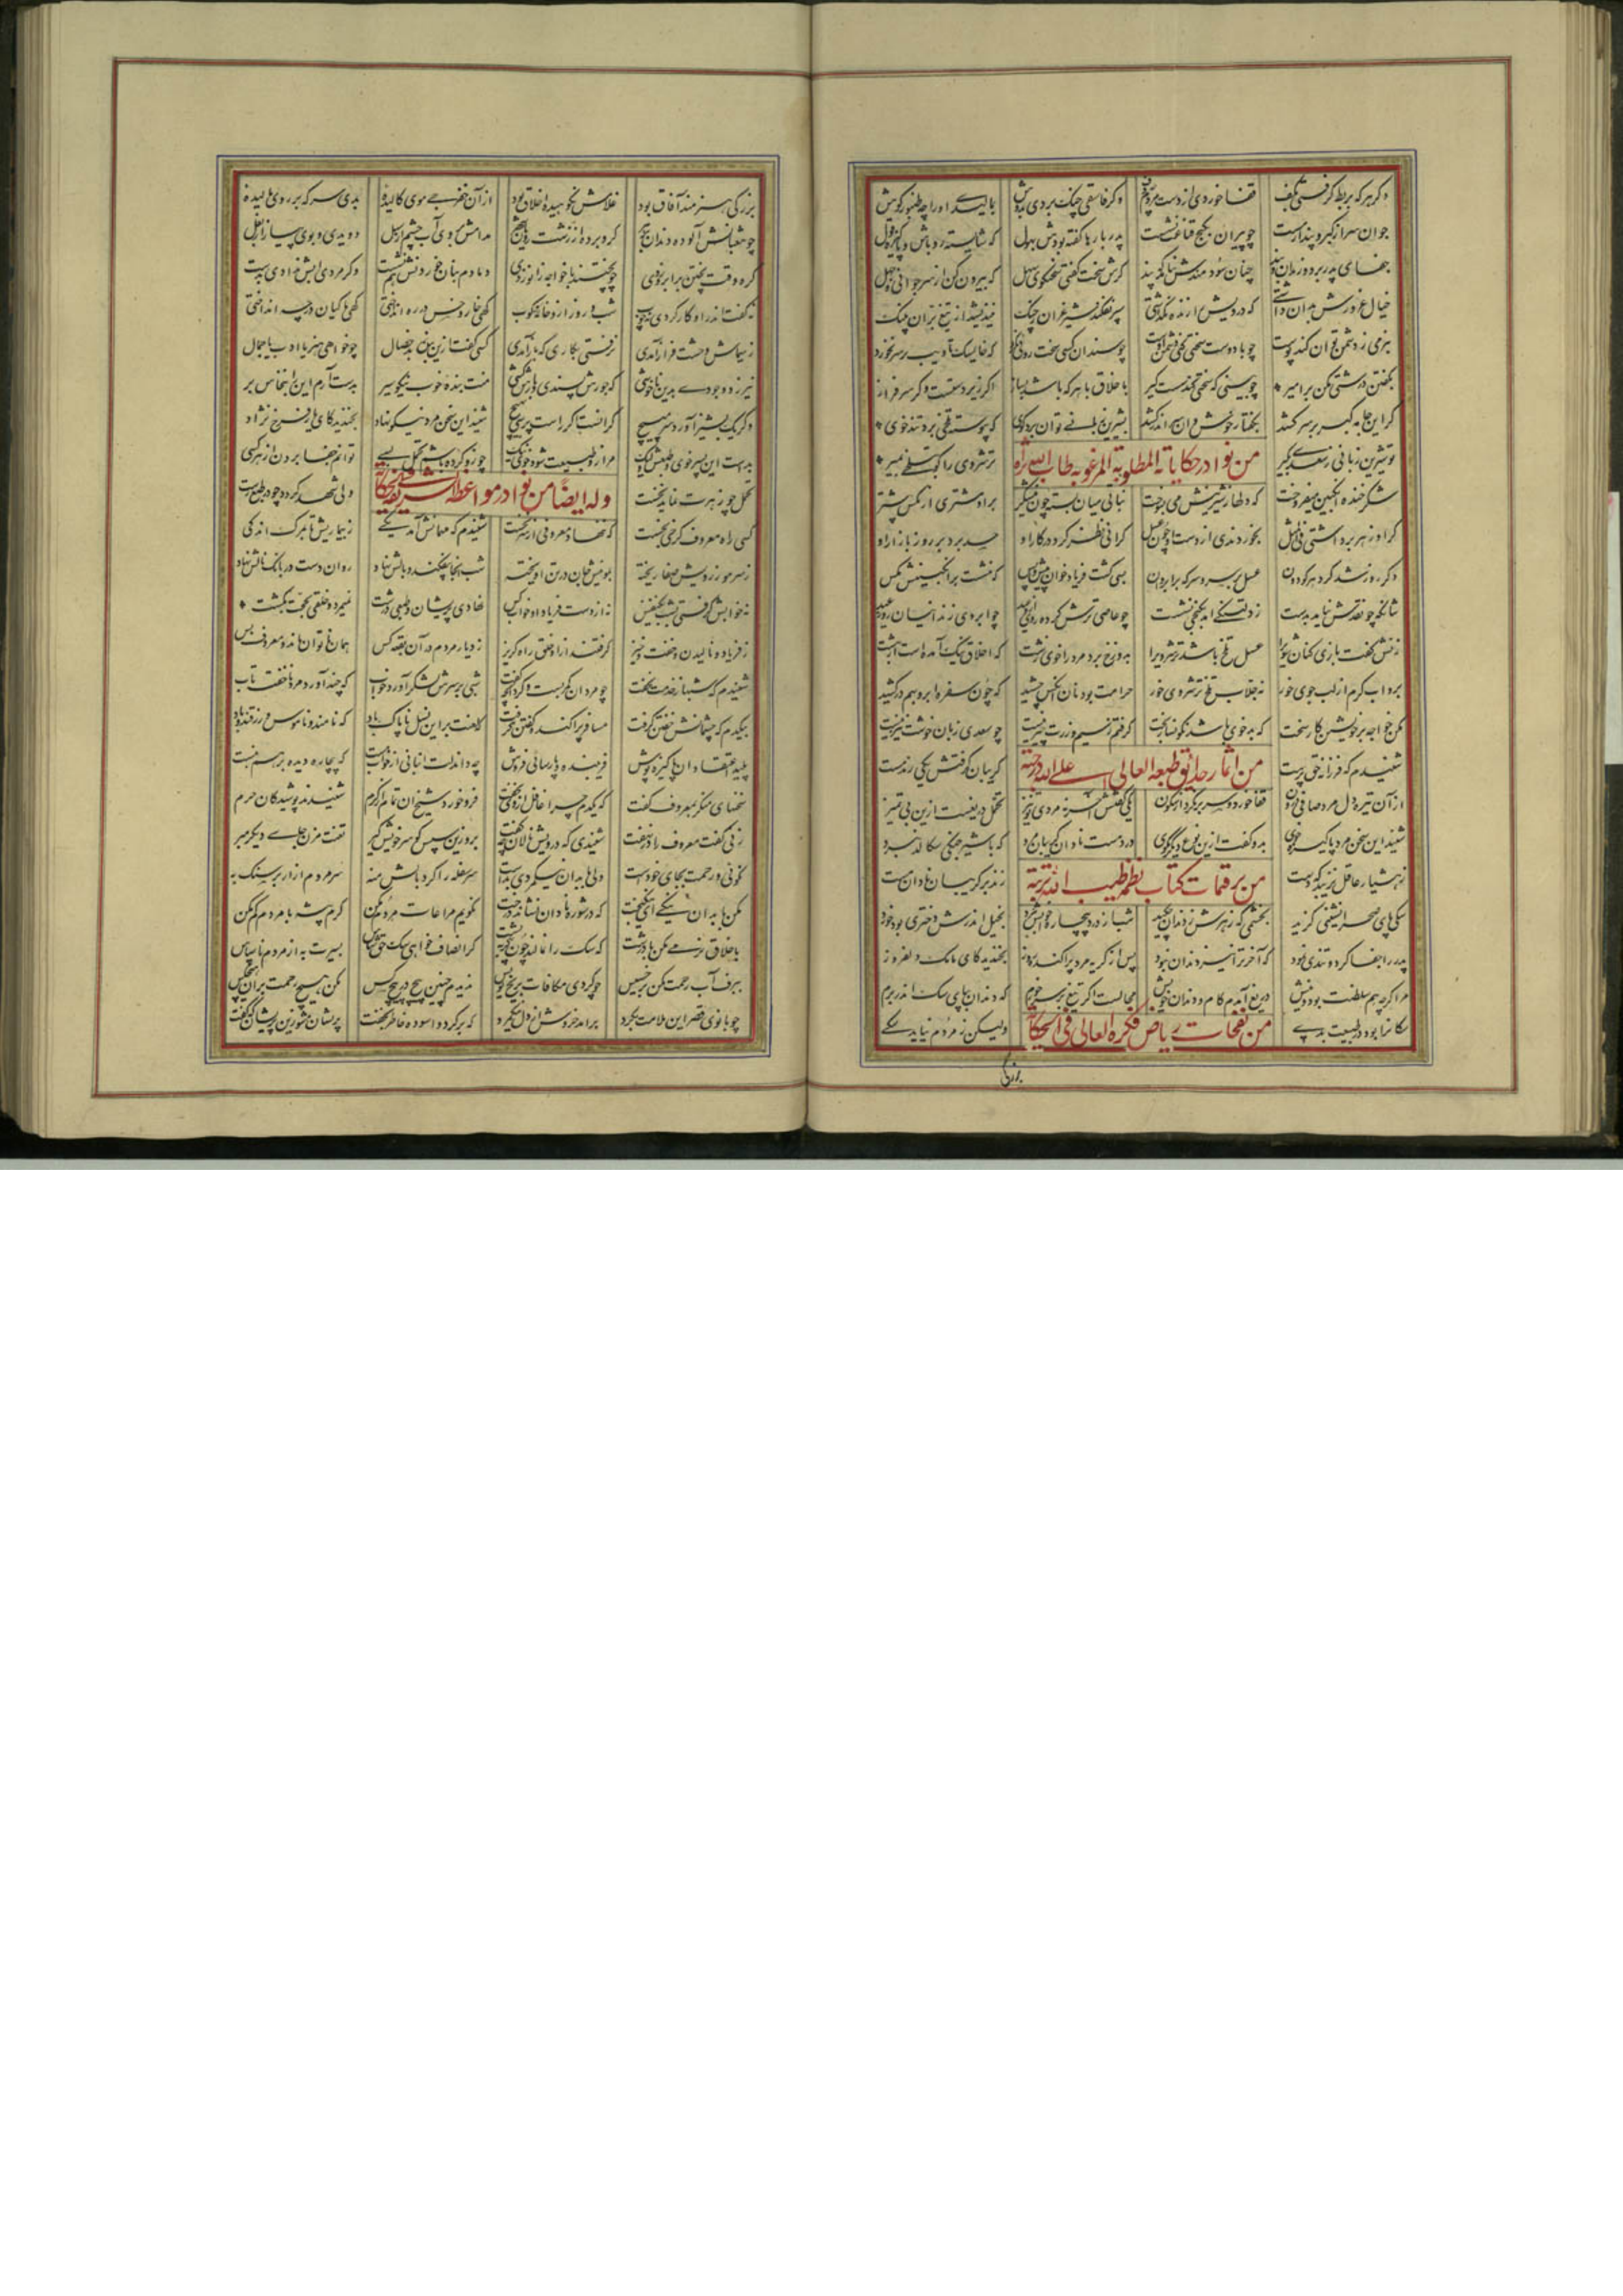 وکر هرکه بربط کرفتی بکف قفا خوردی از دست مردم چو دف وکر فاسقی چنک بردی بدوش بمالیدی او را چو طنبور کوش
جوان سر از کبر و پندار مست چو پیران بکنج قناعت نشست پدر بارها کفته بودش بهول که شایسته رو باش و پاکیزه قول
جفای پدر برد و زندان و بند چنان سودمندش نیامد که پند کرش سخت کفتی سخنکوی سهل که بیرون کن از سر جوانی و جهل
خیال غرورش بدان داشتی که درویش را زنده نکذاشتی سپر نفکند شیر غران ز جنک نیندیشد از تیغ بران پلنک
بنرمی ز دشمن توان کند پوست چو با دوست سختی کنی دشمن اوست چو سندان کسی سخت رویی نکرد که خایسک تادیب بر سر نخورد
بکفتن درشتی مکن بر امیر چو بینی که سختی کند سست کیر باخلاق با هر که باشد بساز اکر زیردست است و کر سرفراز
کر این جامه کبر بر سر کشد بکفتار خوش و آن سر اندر کشد بشیرین زبانی توان برد کوی که پیوسته تلخی برد تندخوی
تو شیرین زبانی ز سعدی بکیر ترشروی را کو بتلخی بمیر
من نوادر حکایاته المطلوبة المرغوبه طاب الله ثراه
شکر خنده انکبین میفروخت که دلها ز شیرینیش می بسوخت نباتی میان بسته چون نیشکر برو مشتری از مکس بیشتر
کر او زهر برداشتی فی المثل بخوردندی از دست او چون عسل کرانی نظر کرد در کار او حسد برد بر روز بازار او
دکر روز شد کرد هر کو دوان عسل بر سر و سرکه بر ابروان بسی کشت فریاد خوان پیش و پس که ننشست بر انکبینش مکس
شبانکه چو نقدش نیامد بدست ز دلتنکی آمد بکنجی نشست چو عاصی ترش کرده روی از وعید چو ابروی زندانیان روز عید
زنش کفت بازی کنان شوی را عسل تلخ باشد ترشروی را بدوزخ برد مرد را خوی زشت که اخلاق نیک آمده است از بهشت
برو آب کرم از لب جوی خور نه جلاب تلخ ترشروی خور حرامت بود نان آنکس چشید که چون سفره ابرو بهم درکشید
مکن خواجه بر خویشتن کار سخت که بدخوی باشد نکونسار بخت کرفتم که سیم و زرت چیز نیست چو سعدی زبان خوشت نیز نیست
شنیدم که فرزانه حق پرست کریبان کرفتش یکی رند مست
من آثار حدائق طبعه العالی علیه الله رحمة
از آن تیره دل مرد صافی درون قفا خورد و سر بر نکرد از سکون یکی کفتش آخر نه مردی تو نیز تحمل دریغست ازین بی تمیز
شنید این سخن مرد پاکیزه خوی بدو کفت ازین نوع دیکر مکوی درد مست نادان کریبان مرد که با شیر جنکی سکالد نبرد
ز هشیار عاقل نزیبد که دست زند در کریبان نادان مست
من برقمات کتاب نظمه طیب الله تربة
سکی پای صحرا نشینی کزید بخشمی که زهرش ز دندان چکید شب از درد بیچاره خوابش نبرد بخیل اندرش دختری بود خرد
پدر را جفا کرد و تندی نمود که آخر ترا نیز دندان نبود پس از کریه مرد پراکنده روز بخندید کای مامک دلفروز
مرا کرچه هم سلطنت بود و نیش دریغ آمدم کام و دندان خویش محالست اکر تیغ بر سر خورم که دندان بپای سک اندر برم
ولیکن ز مردم نیاید سکی
من نفحات ریاض فکره العالی فی الحکایة
بزرکی هنرمند آفاق بود غلامش نکوهیده اخلاق بود از آن خفرقی موی کالیده بدی سرکه بر روی مالیده
چو ثعبانش آلوده دندان بزهر کرو برده از زشت رویان شهر مدامش بروی آب چشم سبل دویدی و بوی پیاز از بغل
کره وقت پختن بر ابرو زدی چو پختند با خواجه زانو زدی دمادم بنان خوردنش هم نشست وکر مردی آبش ندادی بدست
نه کفت اندرو کار کردی نه چوب شب و روز ازو خانه در کند و کوب کهی خار و خس در ره انداختی کهی ماکیان در چه انداختی
ز سیماش وحشت فراز آمدی نرفتی بکاری که باز آمدی کسی کفت ازین بنده بد خصال چه خواهی هنر یا ادب یا جمال
نیرزد وجودی بدین ناخوشی که جورش پسندی و بارش کشی منت بنده خوب نیکو سیر بدست آرم این را بنخاس بر
وکر یک پشیز آورد سر مپیچ کرانست اکر راست پرسی بهیچ شنید این سخن مرد نیکو نهاد بخندید کای یار فرخ نژاد
بدست این پسر خوی و طبعش ولیک مرا زو طبیعت شود خوی نیک چو زو کرده باشم تحمل بسی توانم جفا بردن از هر کسی
تحمل چو زهرت نماید نخست ولی شهد کردد چو در طبع رست
وله ایضاً من نوادر مواعظه الشریفه فی الحکایة
کسی راه معروف کرخی نجست که ننهاد معروفی از سر نخست شنیدم که مهمانش آمد یکی ز بیماریش تا بمرک اندکی
سرش موی و رویش صفا ریخته بموییش جان در تن آویخته شب آنجا بیفکند و بالش نهاد روان دست در بانک و نالش نهاد
نه خوابش کرفتی شب یک نفس نه از دست فریاد او خواب کس نهادی پریشان و طبعی درشت نمیمرد و خلقی بحجت بکشت
ز فریاد و نالیدن و خفت و خیز کرفتند ازو خلق راه کریز ز دیار مردم در آن بقعه کس همان ناتوان ماند و معروف بس
شنیدم که شبها ز خدمت نخفت چو مردان کمر بست و کرد آنچه کفت شبی بر سرش لشکر آورد خواب که چند آورد مرد ناخفته تاب
بیکدم که چشمانش خفتن کرفت مسافر پراکنده کفتن کرفت که لعنت برین نسل ناپاک باد که نامند و ناموس و زرقند و باد
پلید اعتقادان پاکیزه پوش فریبنده پارسائی فروش چه داند لت انبانی از خواب مست که بیچاره دیده بر هم نبست
سخنهای منکر بمعروف کفت که یکدم چرا غافل از وی بخفت فرو خورد شیخ آن سخن از کرم شنیدند پوشیدکان حرم
زنی کفت معروف را در نهفت شنیدی که درویش نالان چه کفت برو زین سپس کو سر خویش کیر تعنت مزن جای دیکر بمیر
نکوئی و رحمت بجای خودست ولی با بدان نیک مردی بدست سر سفله را کرد بالش منه سر مردم آزار بر سنک به
مکن با بدان نیکی ای نیکبخت که در شوره نادان نشاند درخت نکویم مراعات مردم مکن کرم پیشه نامردم کم مکن
باخلاق نرمی مکن با درشت که سک را نمالند چون کربه پشت کر انصاف خواهی سک حق شناس بسیرت به از مردم ناسپاس
ببرف آب رحمت مکن بر خسیس چو کردی مکافات بر یخ نویس ندیدم چنین پیچ بر پیچ کس مکن هیچ رحمت برین هیچ کس
چو بانوی قصر این ملامت بکرد برآمد خروش از دل نیک مرد که برکرد و آسوده خاطر بخفت پریشان مشو زین پریشان که کفت